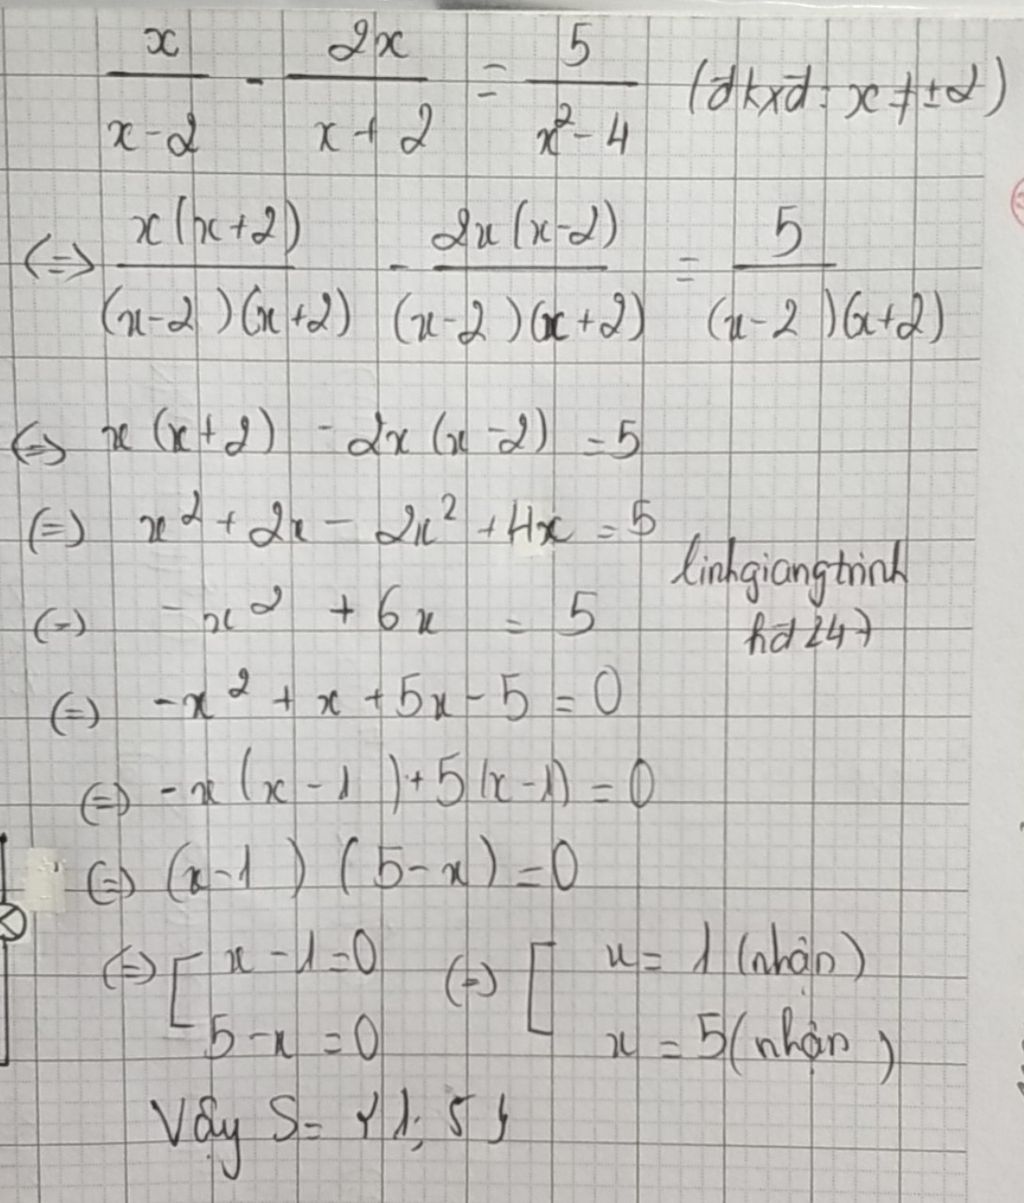 x/(x-2) - 2x/(x+2) = 5/(x²-4) (đkxđ: x≠±2)
<=> x(x+2)/((x-2)(x+2)) - 2x(x-2)/((x-2)(x+2)) = 5/((x-2)(x+2))
<=> x(x+2) - 2x(x-2) = 5
<=> x² + 2x - 2x² + 4x = 5
linhgiangtrinh
hd247
<=> -x² + 6x = 5
<=> -x² + x + 5x - 5 = 0
<=> -x(x-1) + 5(x-1) = 0
<=> (x-1)(5-x) = 0
<=> [ x-1=0 <=> [ x = 1 (nhận)
5-x=0 x = 5 (nhận)
Vậy S = {1; 5}